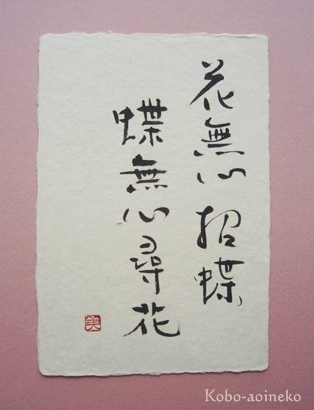 花無心招蝶
蝶無心尋花
美
Kobo-aoineko